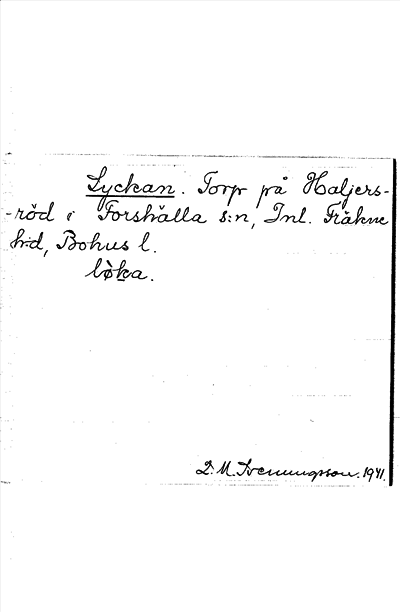 Lyckan. Torp på Haljers-
-röd i Forshälla s:n, Inl. Fräkne
h:d, Bohus l.
lo̊ḵa.
D. M. Svenungsson. 1941.